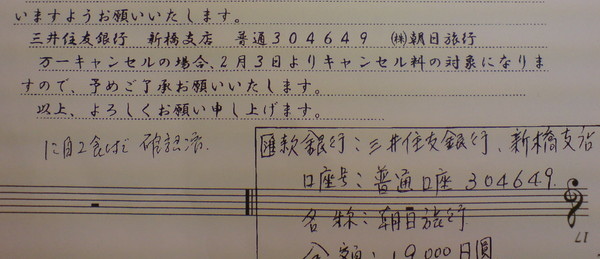 いますようお願いいたします。
三井住友銀行 新橋支店 普通304649 ㈱朝日旅行
万一キャンセルの場合、2月3日よりキャンセル料の対象になりま
すので、予めご了承お願いいたします。
以上、よろしくお願い申し上げます。
確認済
匯款銀行：三井住友銀行、新橋支店
口座号：普通口座 304649.
名称：朝日旅行
金額：19,000日圓
17